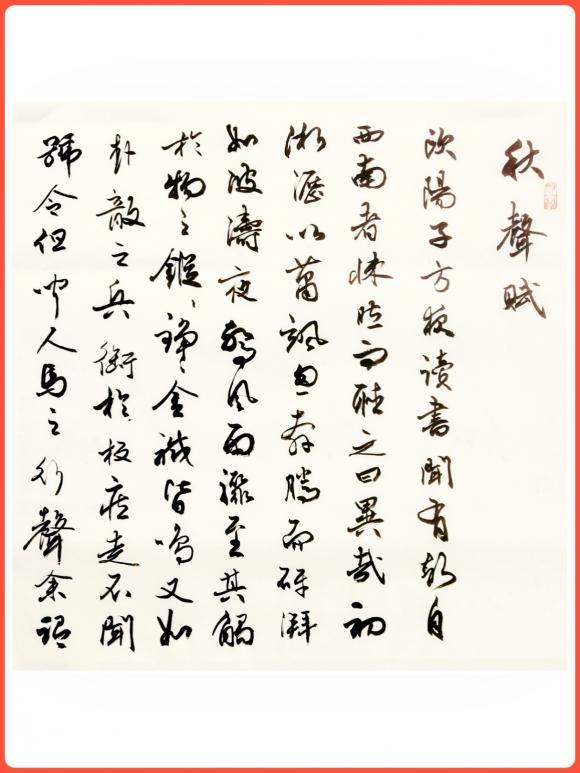 秋聲賦
欧陽子方夜讀書聞有聲自
西南者悚然而聽之曰異哉初
淅瀝以蕭颯忽奔騰而砰湃
如波濤夜驚風雨驟至其觸
於物之鏦〻錚〻金鐵皆鳴又如
赴敵之兵銜於枚疾走不聞
號令但聞人馬之行聲余謂